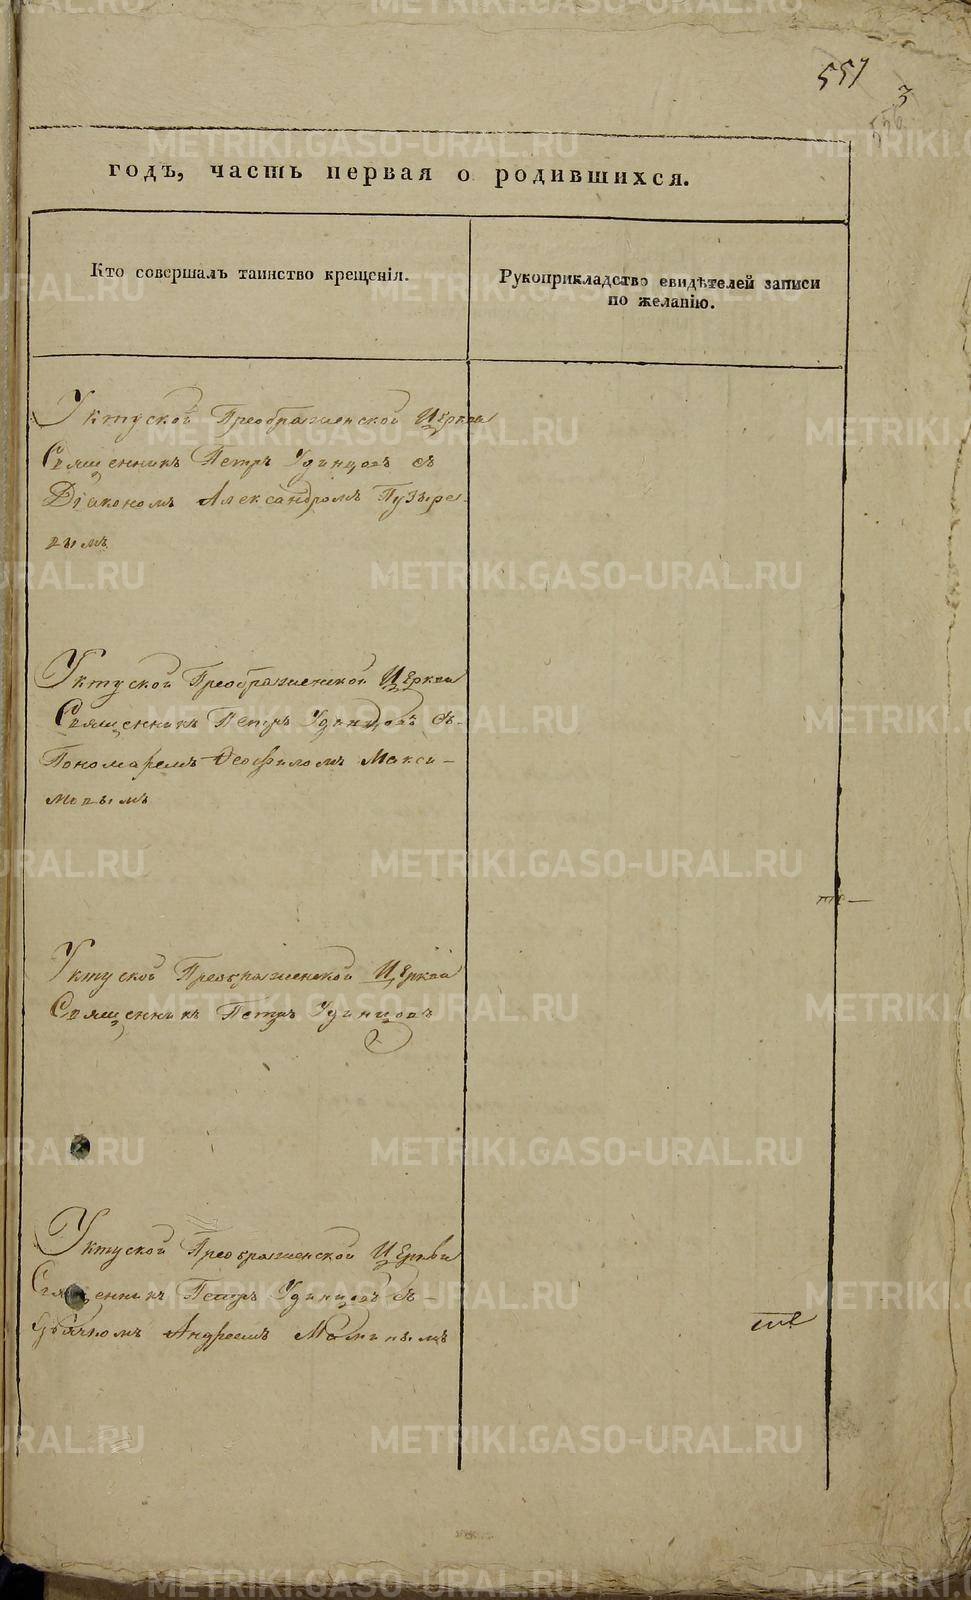 557
3
556
годъ, часть первая о родившихся.
Кто совершалъ таинство крещенія.
Рукоприкладство свидѣтелей записи
по желанію.
Уктуской Преображенской Церкви
Священникъ Петръ Удинцовъ съ
Діакономъ Александромъ Пузыре-
вымъ
Уктуской Преображенской Церкви
Священникъ Петръ Удинцовъ съ-
Пономаремъ Феофиломъ Макси-
мовымъ
Уктуской Преображенской Церкви
Священникъ Петръ Удинцовъ
Уктуской Преображенской Церкви
Священникъ Петръ Удинцовъ съ-
Дьячкомъ Андреемъ Маминымъ
METRIKI.GASO-URAL.RU